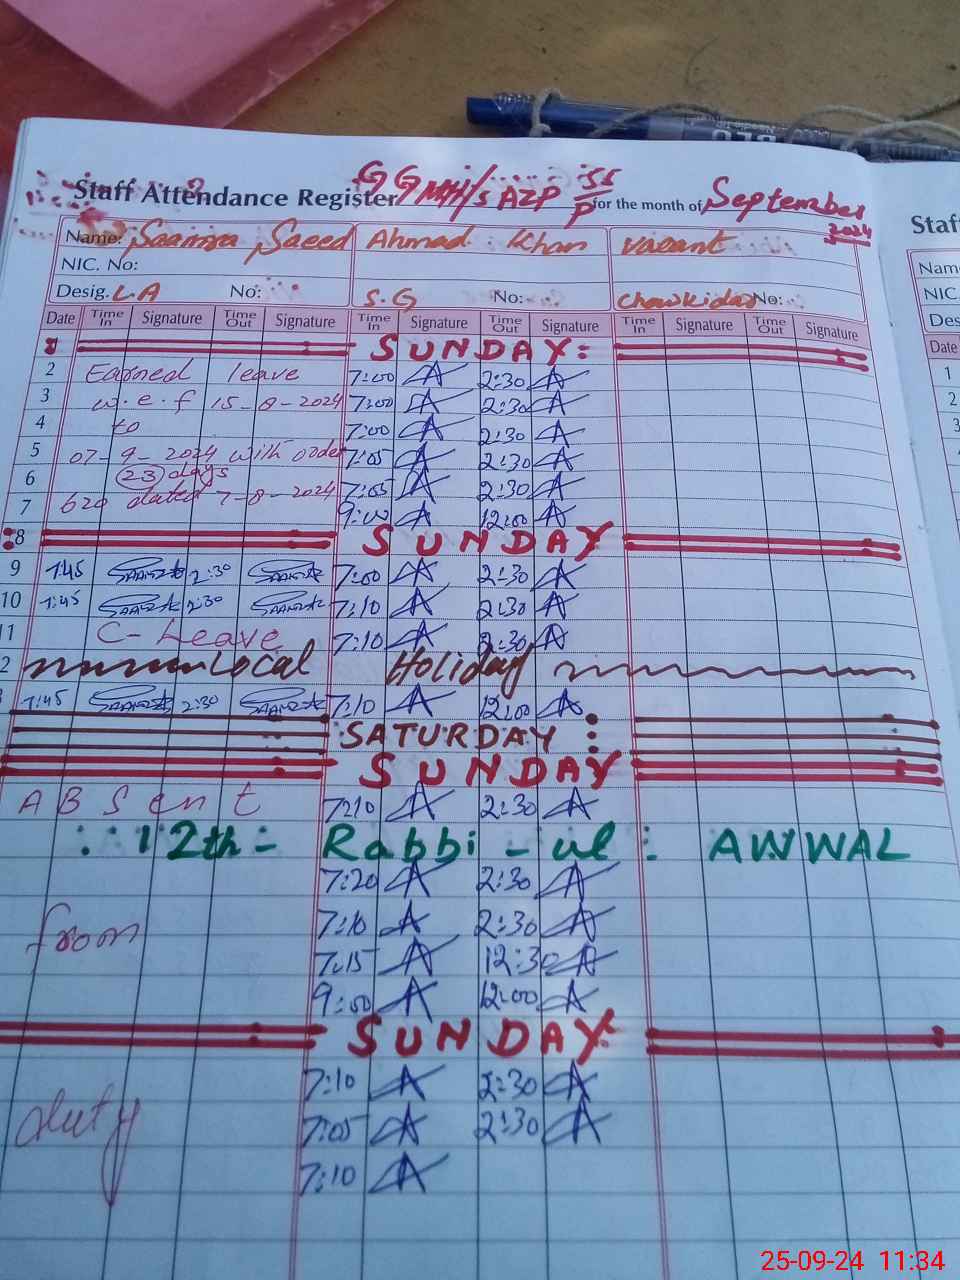 Staff Attendance Register GGMH/S AZP 55/P for the month of September 2024
Staf
Name: Saamra Saeed Ahmad Khan Vacant
NIC. No:
Desig. L.A No: S.G No: Chowkidar No:
Date Time In Signature Time Out Signature Time In Signature Time Out Signature Time In Signature Time Out Signature
SUNDAY:
2 Earned leave 7:00 2:30
3 w.e.f 15-8-2024 7:00 2:30
4 to 7:00 2:30
5 07-9-2024 with order 7:05 2:30
6 (23) days 7:05 2:30
7 620 dated 7-8-2024 9:00 12:00
8 SUNDAY
9 7:45 2:30 7:00 2:30
10 7:45 2:30 7:10 2:30
11 C-Leave 7:10 2:30
2 Local Holiday
7:45 2:30 7:10 12:00
SATURDAY:
SUNDAY
ABSent 7:10 2:30
: 12th- Rabbi-ul: AWWAL
7:20 2:30
from 7:10 2:30
7:15 12:30
9:00 12:00
SUNDAY
7:10 2:30
duty 7:05 2:30
7:10
Name
NIC.
Des
Date
1
2
3
25-09-24 11:34